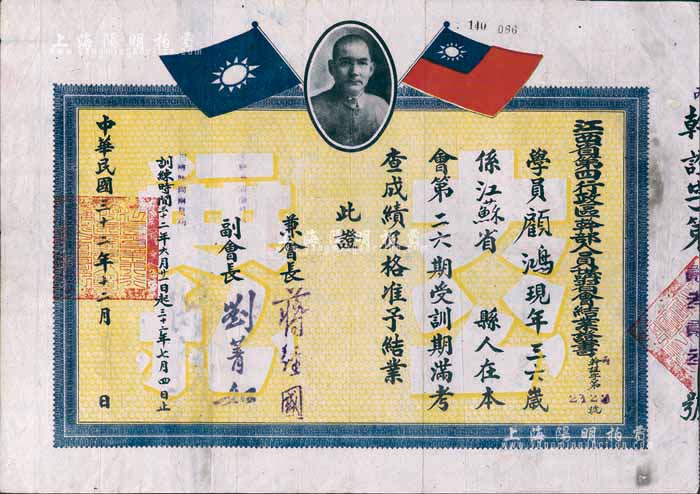 140 086
江西省第四行政區幹部人員講習會結業證書
幹證字第
2320號
學員顧鴻現年三六歲
係江蘇省 縣人在本
會第二六期受訓期滿考
查成績及格准予結業
此證
兼會長 蔣經國
副會長 劉菁
訓練時間卅二年六月廿一日起三十二年七月四日止
中華民國三十二年十二月 日
幹證字第
號
上海陽明拍賣
上海陽明拍賣
上海陽明拍賣